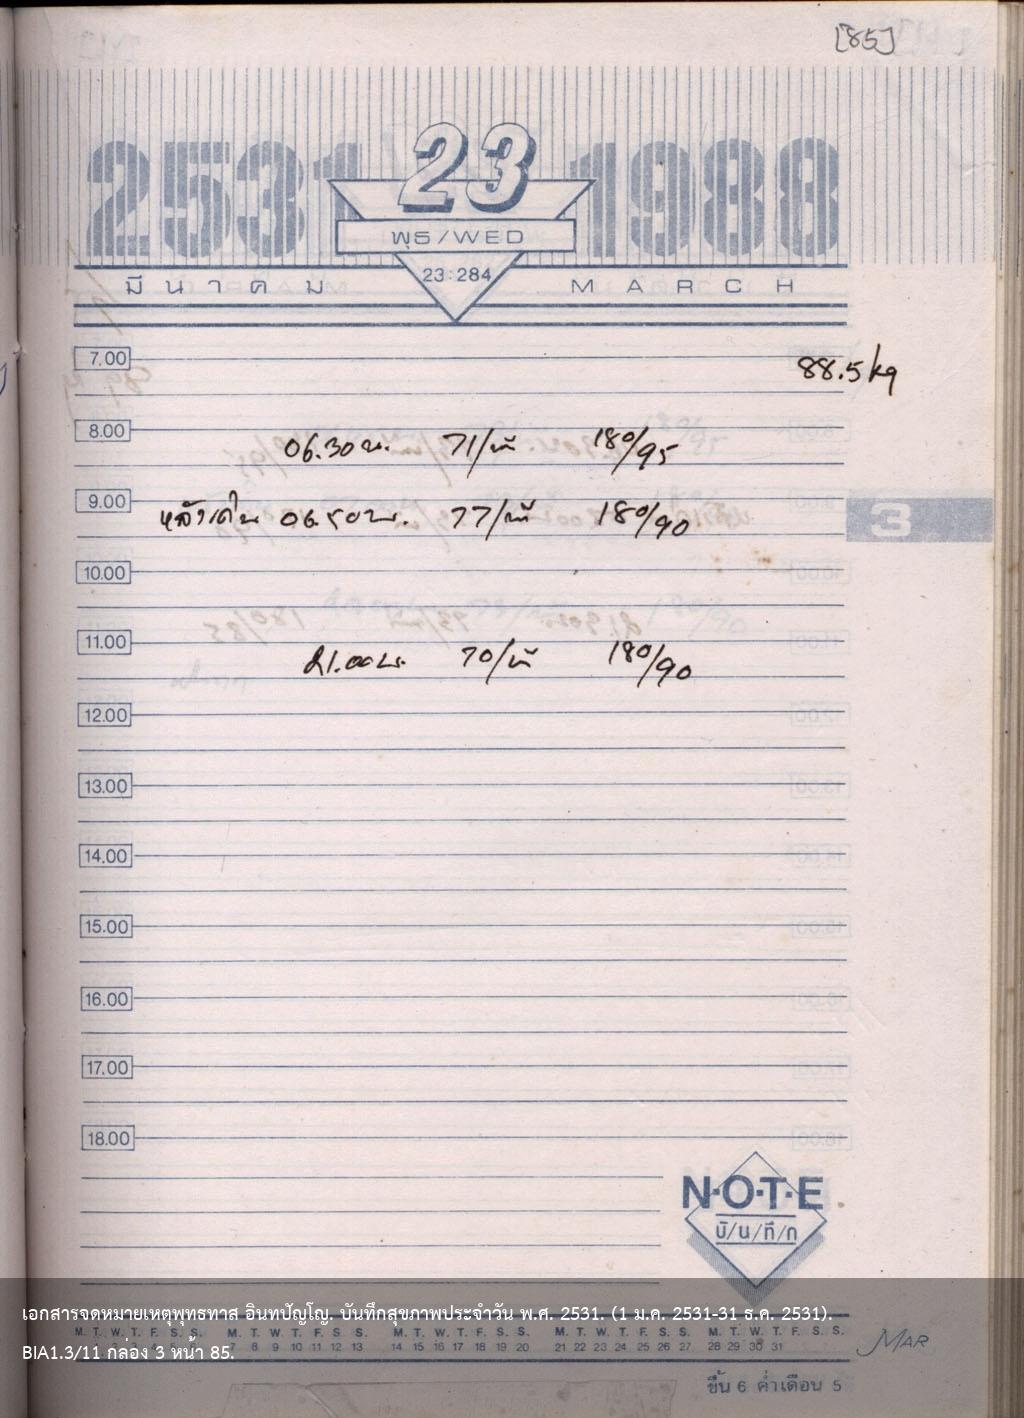 [85]
2531 23 1988
พุธ/WED
23:284
มีนาคม MARCH
7.00
88.5 kg
8.00
06.30 น. 71/นาที 180/95
9.00
3
หลังเดิน 06.50 น. 77/นาที 180/90
10.00
11.00
21.00 น. 70/นาที 180/90
12.00
13.00
14.00
15.00
16.00
17.00
18.00
N·O·T·E
บั/น/ทึ/ก
เอกสารจดหมายเหตุพุทธทาส อินทปัญโญ. บันทึกสุขภาพประจำวัน พ.ศ. 2531. (1 ม.ค. 2531-31 ธ.ค. 2531).
M. T. W. T. F. S. S. M. T. W. T. F. S. S. M. T. W. T. F. S. S. M. T. W. T. F. S. S. M. T. W. T. F. S. S.
7 8 9 10 11 12 13 14 15 16 17 18 19 20 21 22 23 24 25 26 27 28 29 30 31
MAR
BIA1.3/11 กล่อง 3 หน้า 85.
ขึ้น 6 ค่ำเดือน 5